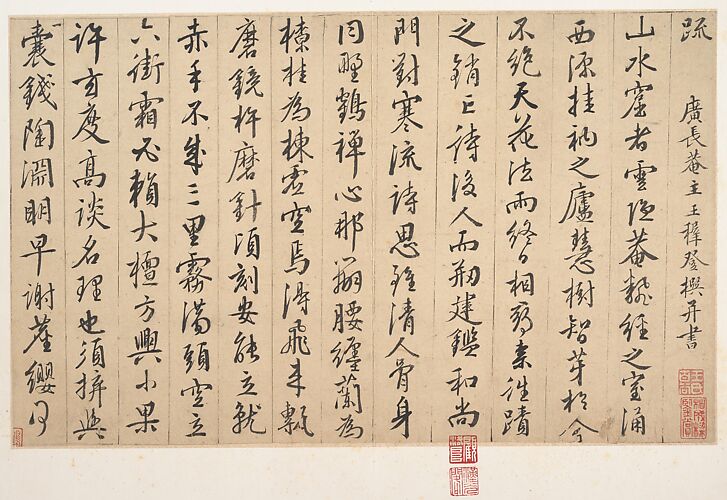 疏
廣長菴主王穉登撰并書
山水窟者雲隱菴繙經之室涌
西源挂衲之廬慧樹智芽於今
不絕天花法雨終日相霑奈往蹟
之銷亡待後人而刱建鑑和尚
門對寒流詩思雖清人骨身
同野鶴禪心那羈腰纏蘭為
橑桂為棟虛空焉得飛來甎
磨鏡杵磨針頃刻安能立就
赤手不成三里霧滿頭空立
六街霜必賴大檀方興小果
許玄度高談名理也須拚與
囊錢陶淵明早謝簪纓